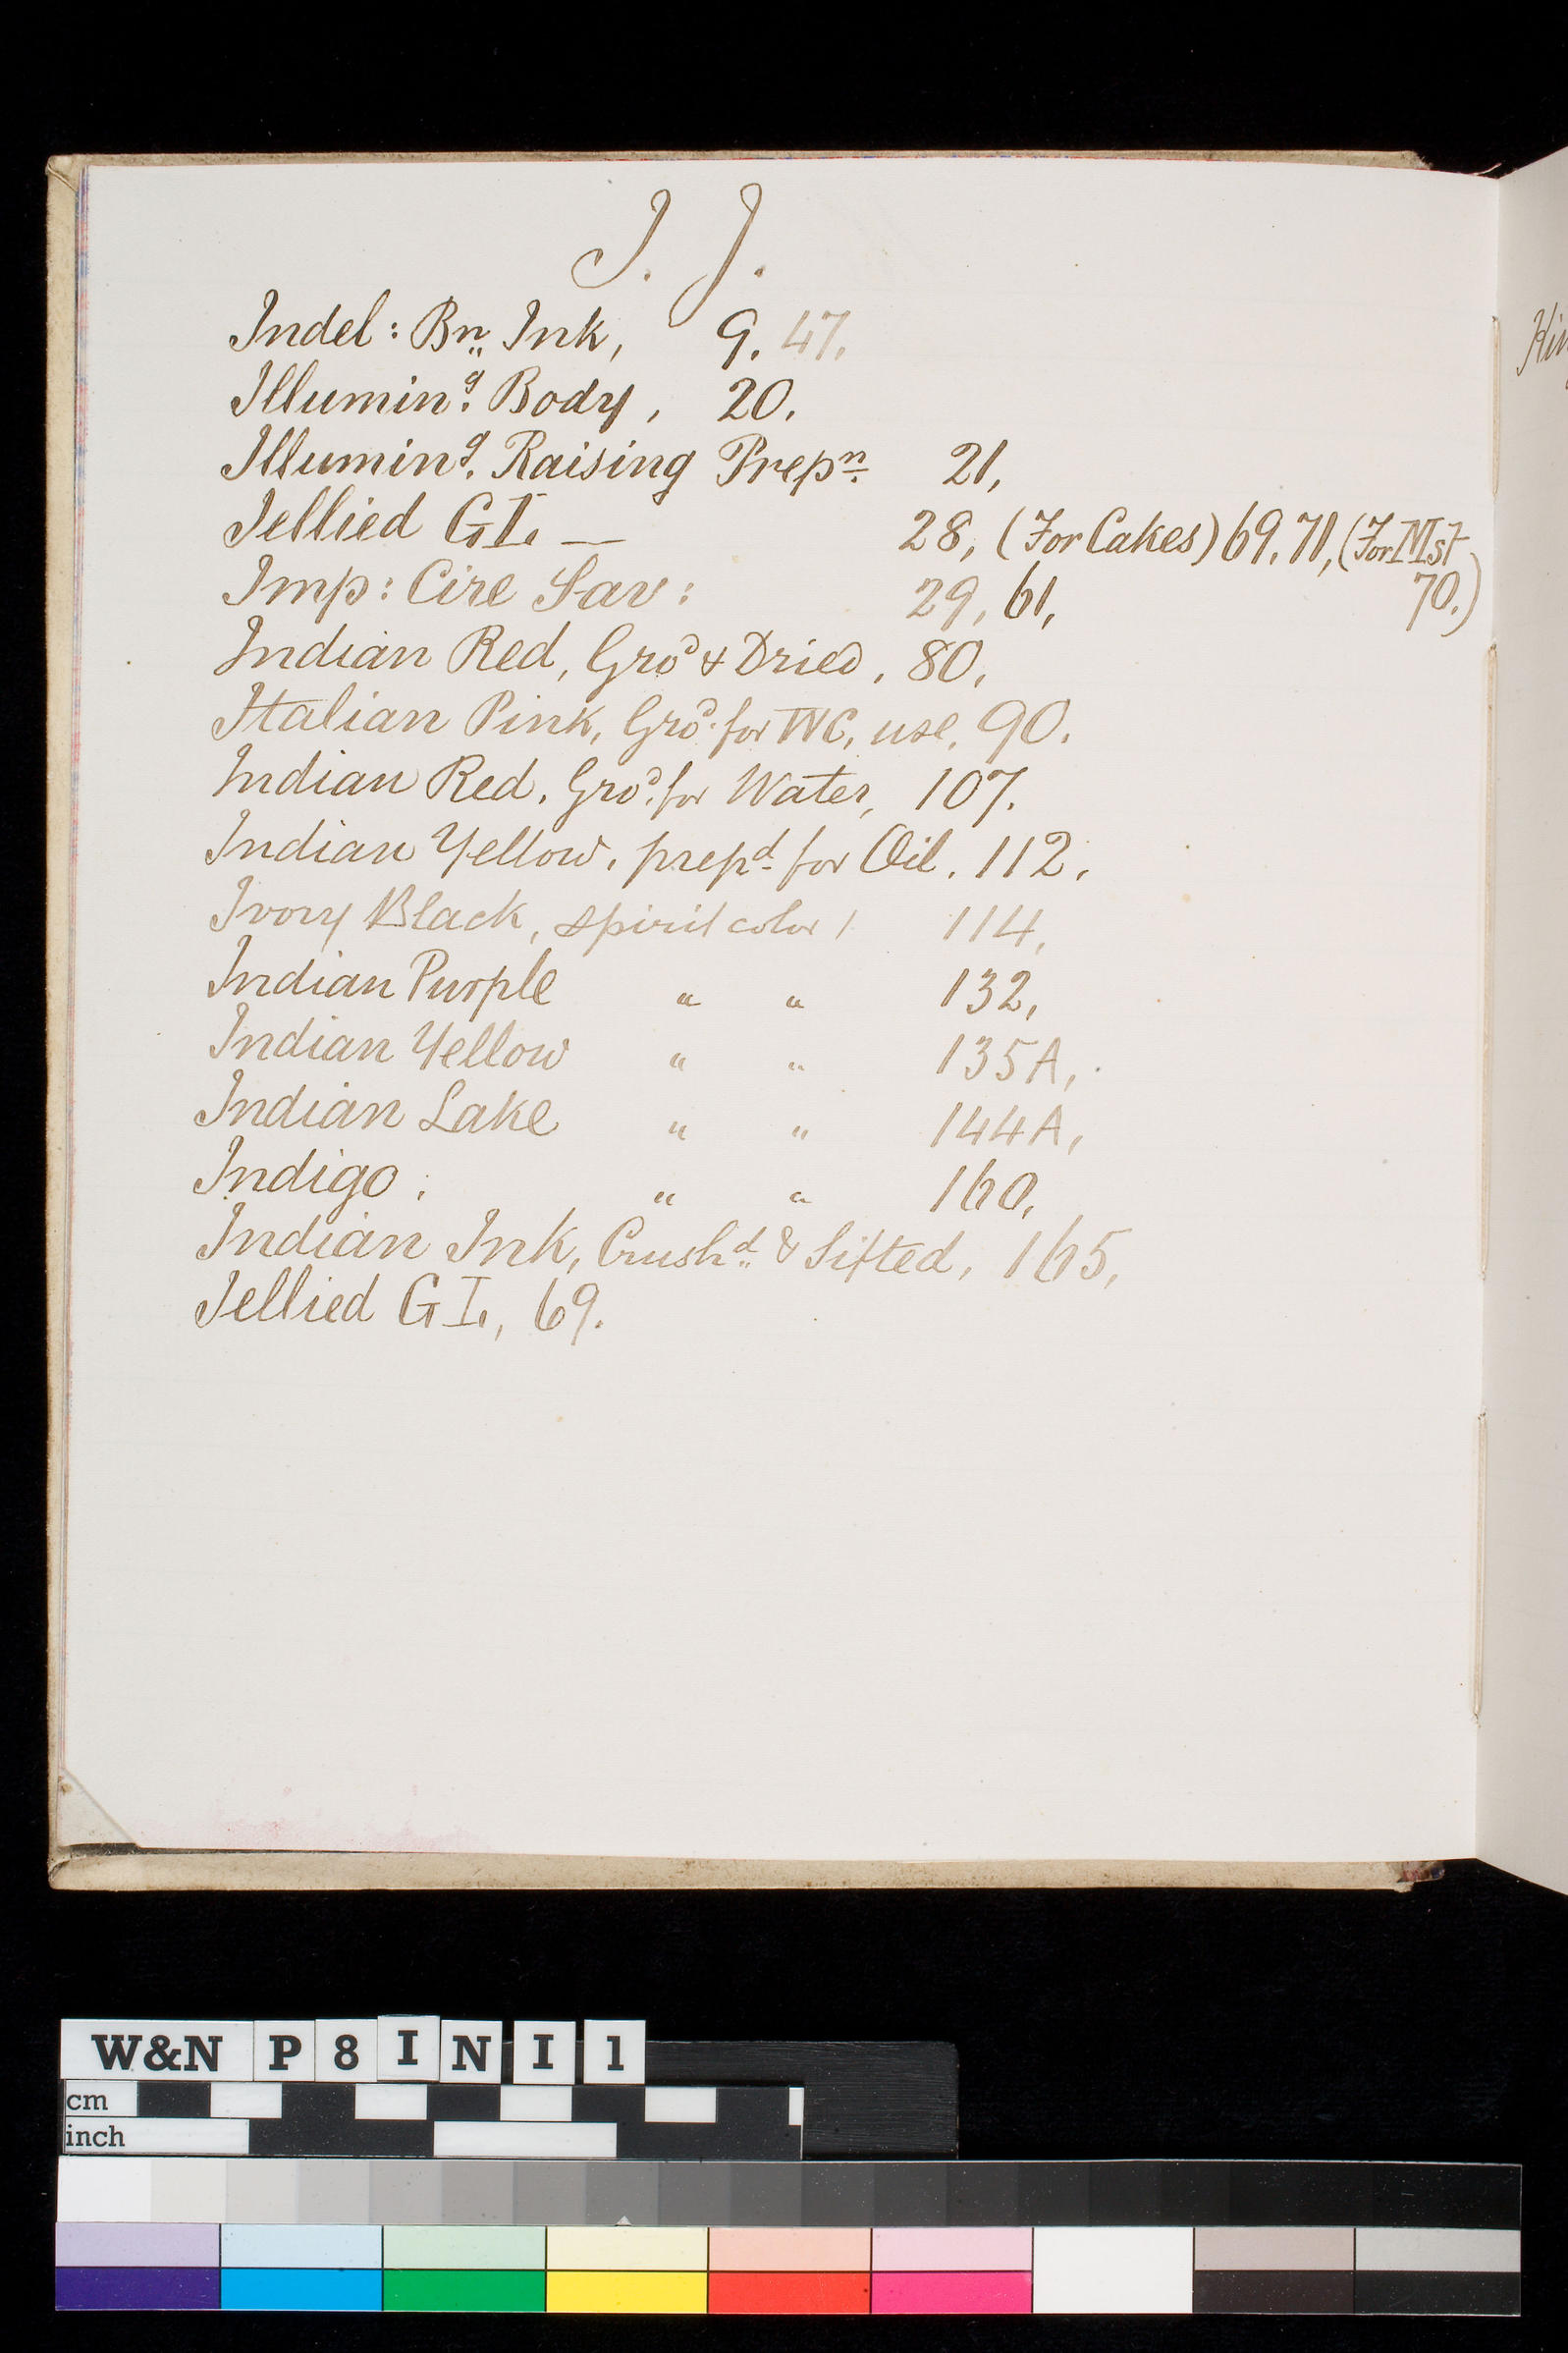 I. J.
Indel: Bn. Ink, 9. 47.
Illumin.g Body, 20.
Illumin.g Raising Prep.n 21,
Jellied G I. — 28, (For Cakes) 69. 71, (For Mst
70.)
Imp: Cire Sav: 29, 61,
Indian Red, Gro.d & Dried, 80,
Italian Pink, Gro.d for WC, use, 90.
Indian Red. Gro.d for Water, 107.
Indian Yellow, prep.d for Oil. 112,
Ivory Black, spirit color / 114,
Indian Purple " " 132,
Indian Yellow " " 135A,
Indian Lake " " 144A,
Indigo. " " 160,
Indian Ink, Crush.d & Sifted, 165,
Jellied G I., 69.
W&N P 8 I N I 1
cm
inch